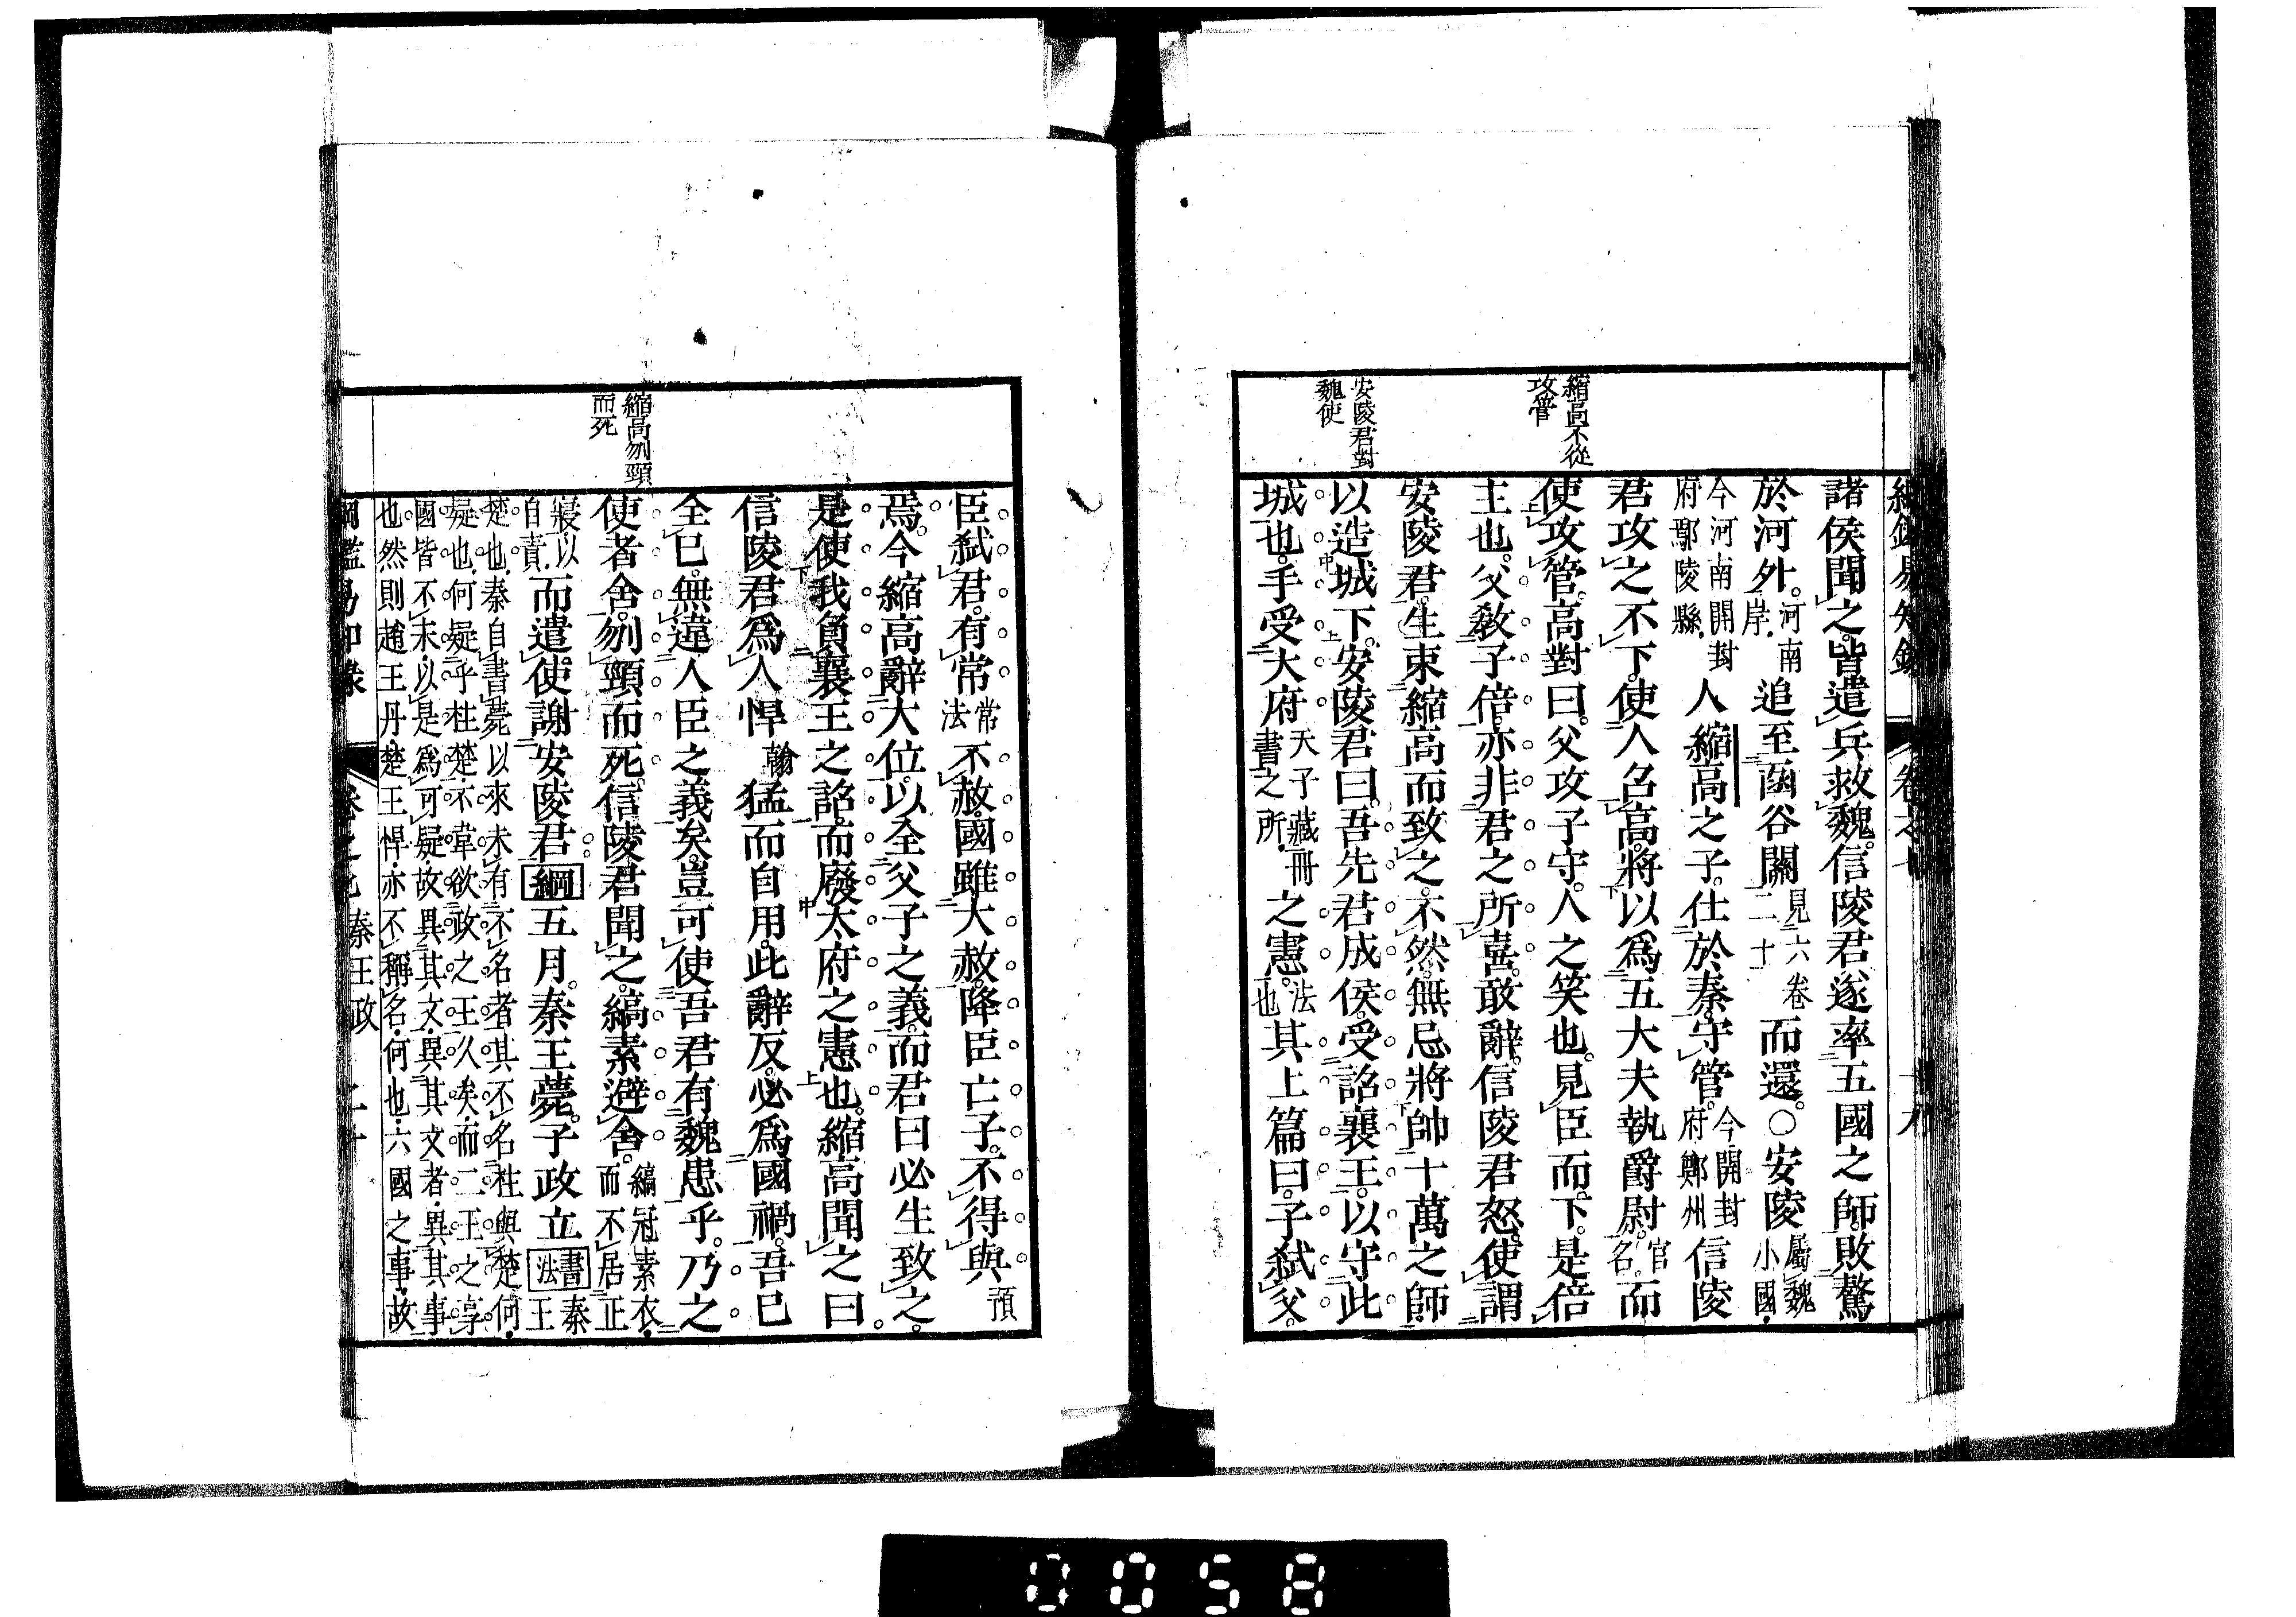 綱鑑易知錄 卷之七 十九
諸侯聞之皆遣兵救魏。信陵君遂率五國之師。敗驁
於河外。河南岸。追至函谷關見六卷二十一而還。○安陵屬魏小國。
今河南開封府鄢陵縣。人縮高之子。仕於秦。守管。今開封府鄭州信陵
君攻之不下。使人召高。將以爲五大夫執爵尉。官名。而
使攻管。高對曰。父攻子守。人之笑也。見臣而下。是倍
主也。父敎子倍。亦非君之所喜。敢辭。信陵君怒。使謂
安陵君。生束縮高而致之。不然。無忌將帥十萬之師。
以造城下。安陵君曰。吾先君成侯。受詔襄王。以守此
城也。手受大府天子藏冊書之所。之憲。法也其上篇曰。子弑父。
縮高不從
攻管
安陵君對
魏使
臣弑君。有常常法不赦。國雖大赦。降臣亡子。不得與預
焉。今縮高辭大位。以全父子之義。而君曰必生致之。
是使我負襄王之詔。而廢太府之憲也。縮高聞之曰。
信陵君爲人悍翰猛而自用。此辭反。必爲國禍。吾已
全已。無違人臣之義矣。豈可使吾君有魏患乎。乃之
使者舍。刎頸而死。信陵君聞之。縞素避舍。縞冠素衣。而不居正
寢以自責。而遣使謝安陵君。綱五月。秦王薨。子政立書法秦王
楚也。秦自書薨以來未有不名者。其不名柱與楚何。
疑也。何疑乎柱楚。不韋欲政之王久矣。而二王之享
國皆不末。以是爲可疑。故異其文。異其文者。異其事
也。然則趙王丹。楚王悍。亦不稱名。何也。六國之事。故
縮高刎頸
而死
綱鑑易知錄 卷之七 秦王政 二十